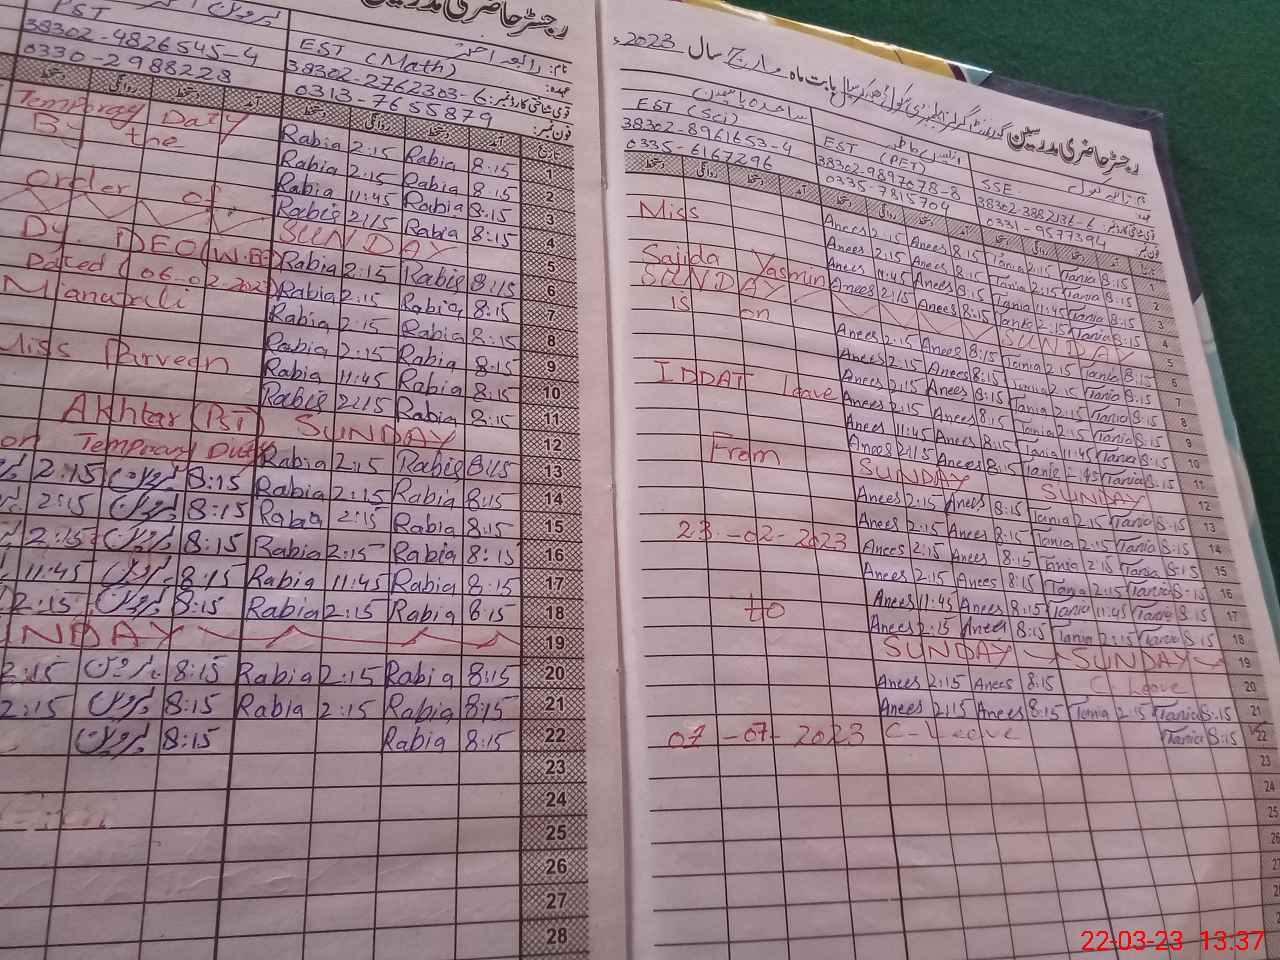 رجسٹر حاضری مدرسین
PST
38302-4826545-4
0330-2988228
نام: رابعہ
عہدہ: EST (Math)
قومی شناختی کارڈ نمبر: 38302-2762303-6
فون نمبر: 0313-7655879
تاریخ آمد دستخط روانگی دستخط
Temporary Duty
By the
order of
Dy. DEO (W.EE)
Dated (06.02.2023)
Mianwali
Miss Parveen
Akhtar (PST)
on Temporary Duty
Rabia 2:15 Rabia 8:15 1
Rabia 2:15 Rabia 8:15 2
Rabia 11:45 Rabia 8:15 3
Rabia 2:15 Rabia 8:15 4
SUNDAY 5
Rabia 2:15 Rabia 8:15 6
Rabia 2:15 Rabia 8:15 7
Rabia 2:15 Rabia 8:15 8
Rabia 2:15 Rabia 8:15 9
Rabia 11:45 Rabia 8:15 10
Rabia 2:15 Rabia 8:15 11
SUNDAY 12
Rabia 2:15 Rabia 8:15 13
2:15 8:15 Rabia 2:15 Rabia 8:15 14
2:15 8:15 Rabia 2:15 Rabia 8:15 15
2:15 8:15 Rabia 2:15 Rabia 8:15 16
11:45 8:15 Rabia 11:45 Rabia 8:15 17
2:15 8:15 Rabia 2:15 Rabia 8:15 18
SUNDAY 19
2:15 8:15 Rabia 2:15 Rabia 8:15 20
2:15 8:15 Rabia 2:15 Rabia 8:15 21
8:15 Rabia 8:15 22
23
24
25
26
27
28
رجسٹر حاضری مدرسین
بابت ماہ مارچ سال 2023ء
EST (Sci)
38302-8961653-4
0335-6167296
EST (PET)
38302-9897078-8
0335-7815704
SSE
38302-3882136-6
0331-9577394
Miss
Sajida Yasmin
SUNDAY
is on
IDDAT Leave
From
23-02-2023
to
07-07-2023
Anees 2:15 Anees 8:15 Tania 2:15 Tania 8:15 1
Anees 2:15 Anees 8:15 Tania 2:15 Tania 8:15 2
Anees 11:45 Anees 8:15 Tania 11:45 Tania 8:15 3
Anees 2:15 Anees 8:15 Tania 2:15 Tania 8:15 4
SUNDAY 5
Anees 2:15 Anees 8:15 Tania 2:15 Tania 8:15 6
Anees 2:15 Anees 8:15 Tania 2:15 Tania 8:15 7
Anees 2:15 Anees 8:15 Tania 2:15 Tania 8:15 8
Anees 2:15 Anees 8:15 Tania 2:15 Tania 8:15 9
Anees 11:45 Anees 8:15 Tania 11:45 Tania 8:15 10
Anees 2:15 Anees 8:15 Tania Tania 8:15 11
SUNDAY SUNDAY 12
Anees 2:15 Anees 8:15 Tania 2:15 Tania 8:15 13
Anees 2:15 Anees 8:15 Tania 2:15 Tania 8:15 14
Anees 2:15 Anees 8:15 Tania 2:15 Tania 8:15 15
Anees 2:15 Anees 8:15 Tania 2:15 Tania 8:15 16
Anees 11:45 Anees 8:15 Tania 11:45 Tania 8:15 17
Anees 2:15 Anees 8:15 Tania 2:15 Tania 8:15 18
SUNDAY SUNDAY 19
Anees 2:15 Anees 8:15 C-Leave 20
Anees 2:15 Anees 8:15 Tania 2:15 Tania 8:15 21
C-Leave Tania 8:15 22
23
24
25
26
22-03-23 13:37